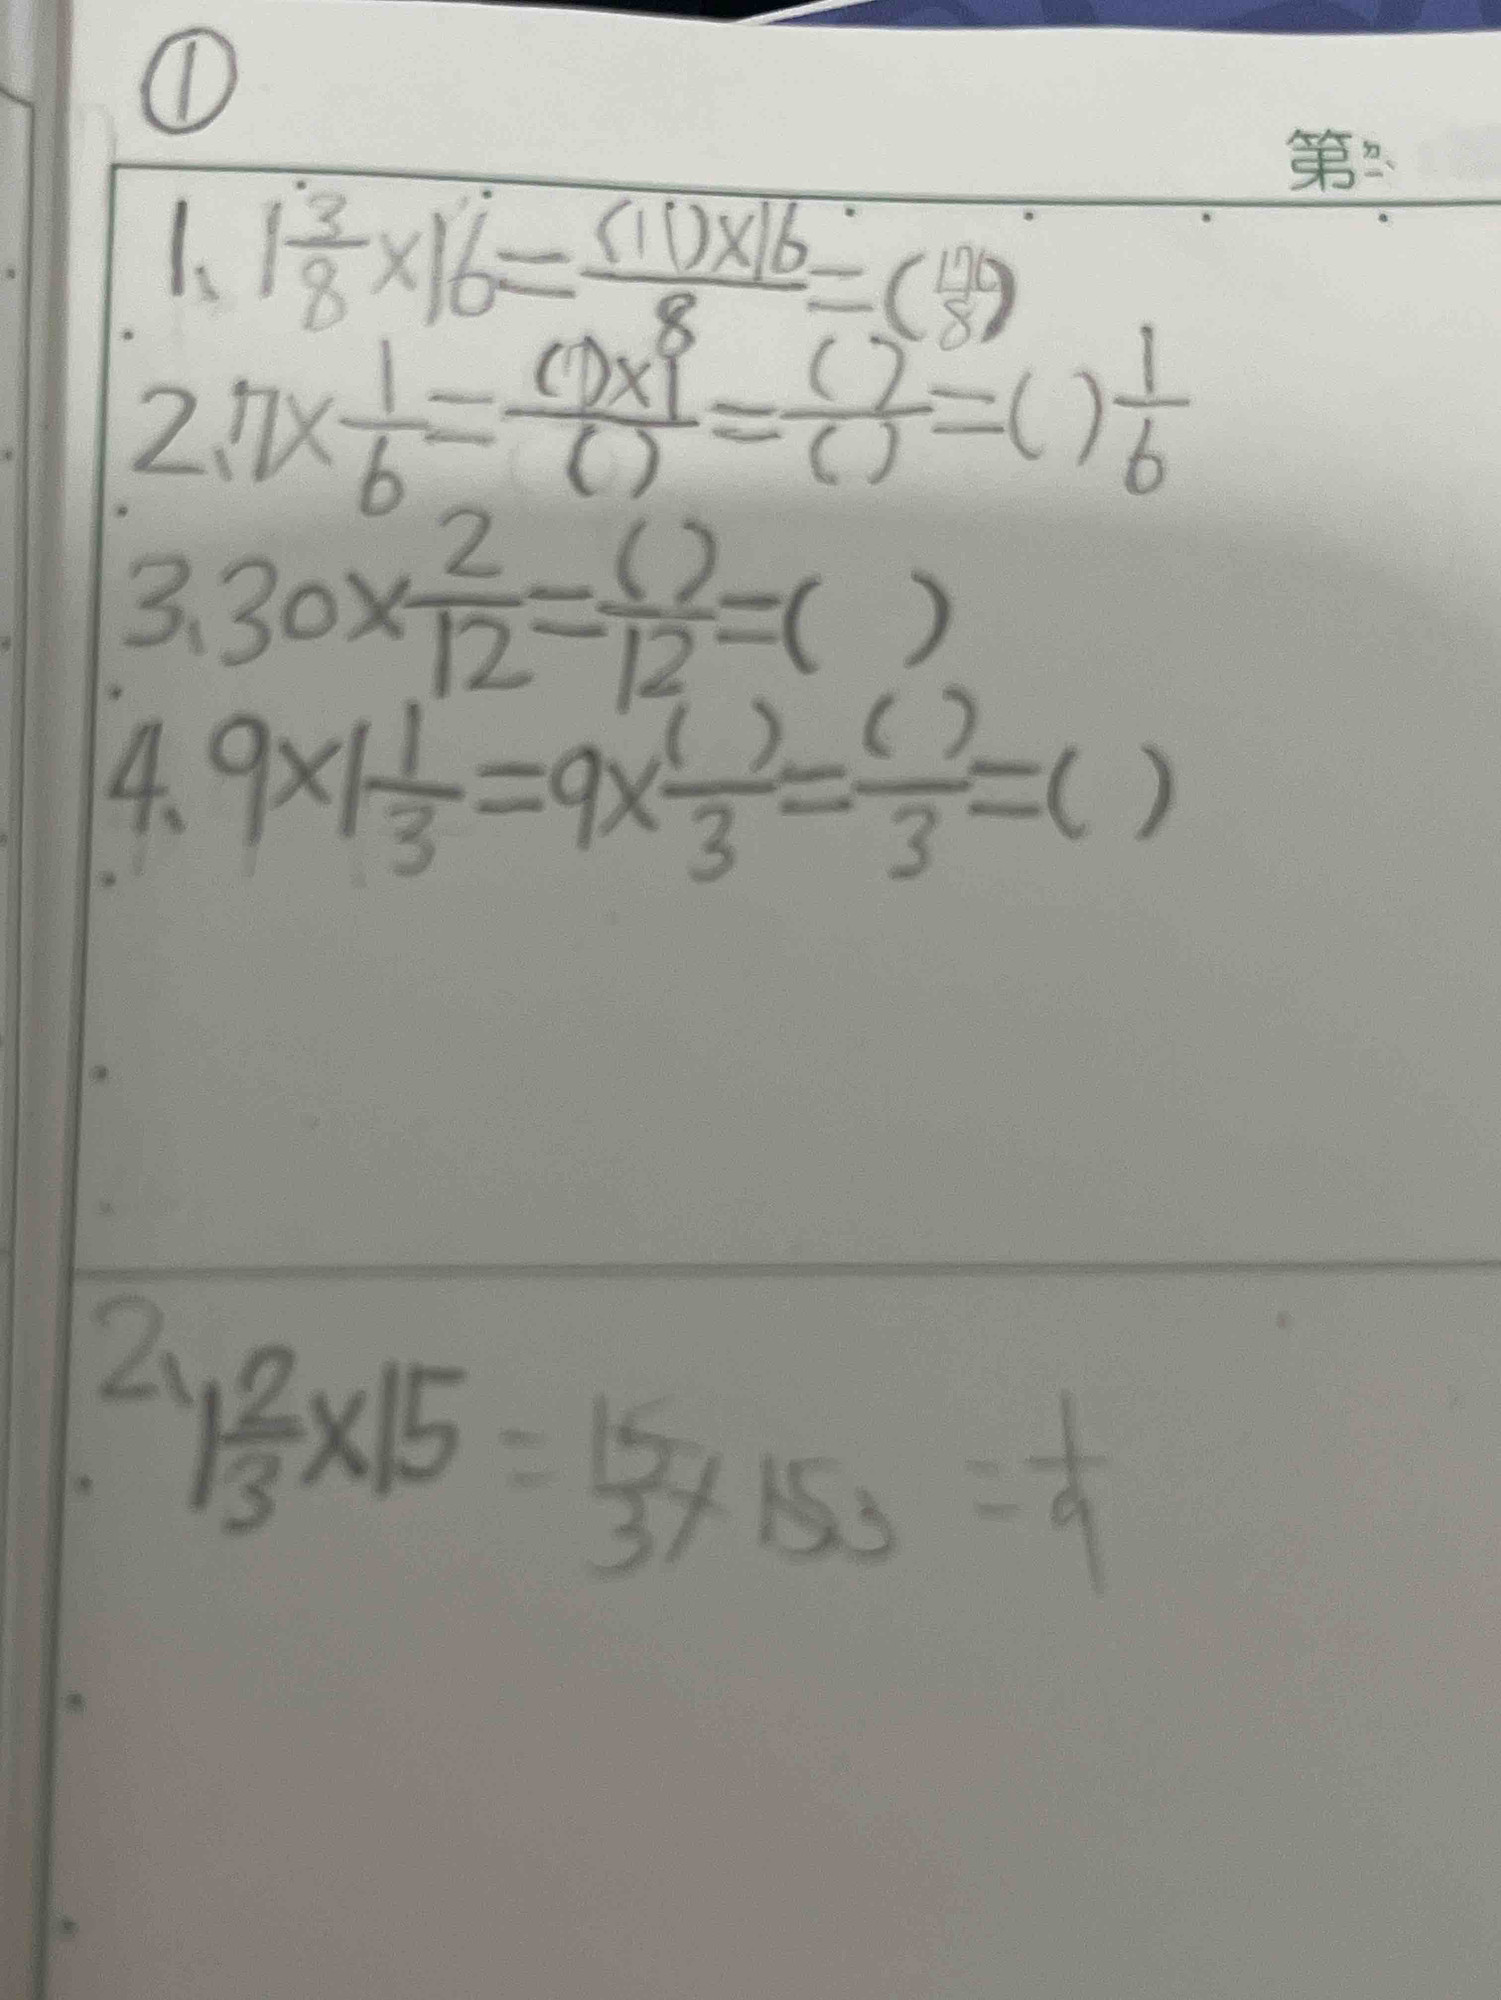 ①
第
1、1 3/8 ×16 = (11)×16/8 = (176/8)
2、7× 1/6 = (7)×1/( ) = ( )/( ) = ( ) 1/6
3、30× 2/12 = ( )/12 = ( )
4、9×1 1/3 = 9× ( )/3 = ( )/3 = ( )
2、
1 2/3 ×15 = 15/3 × 15 = 1/9